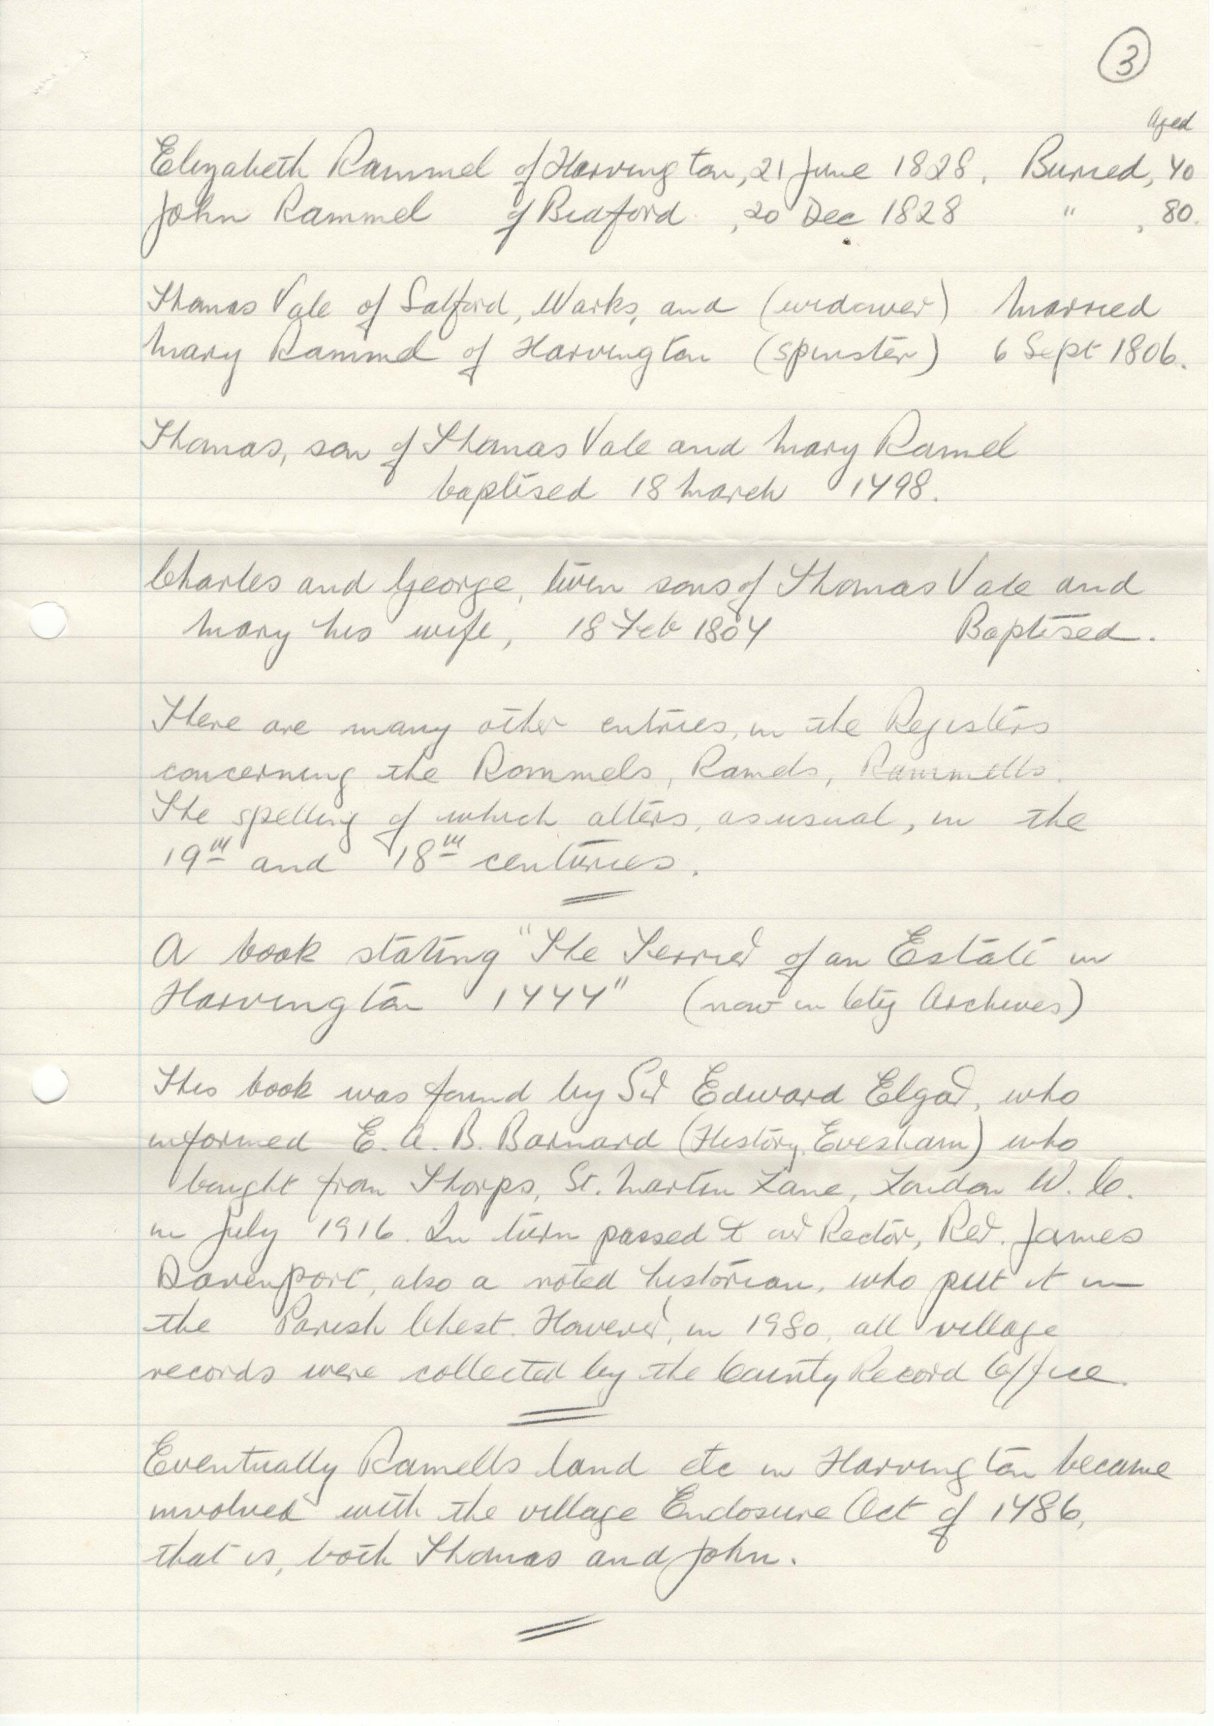 3
Aged
Elizabeth Rammel of Harvington, 21 June 1828. Buried, 70
John Rammel of Bidford, 20 Dec 1828 " , 80.
Thomas Vale of Salford, Warks, and (widower) Married
Mary Rammel of Harvington (spinster) 6 Sept 1806.
Thomas, son of Thomas Vale and Mary Ramel
baptised 18 March 1798.
Charles and George, twin sons of Thomas Vale and
Mary his wife, 18 Feb 1807 Baptised.
There are many other entries, in the Registers
concerning the Rammels, Ramels, Rammells.
The spelling of which alters, as usual, in the
19th and 18th centuries.
A book stating "The Terrier of an Estate in
Harvington 1777" (now in Cty Archives)
This book was found by Sir Edward Elgar, who
informed E. A. B. Barnard (History, Evesham) who
bought from Thorps, St. Martin Lane, London W. C.
in July 1916. In turn passed to our Rector, Rev. James
Davenport, also a noted historian, who put it in
the Parish Chest. However, in 1980, all village
records were collected by the County Record Office.
Eventually Ramells land etc in Harvington became
involved with the village Enclosure Act of 1786,
that is, both Thomas and John.